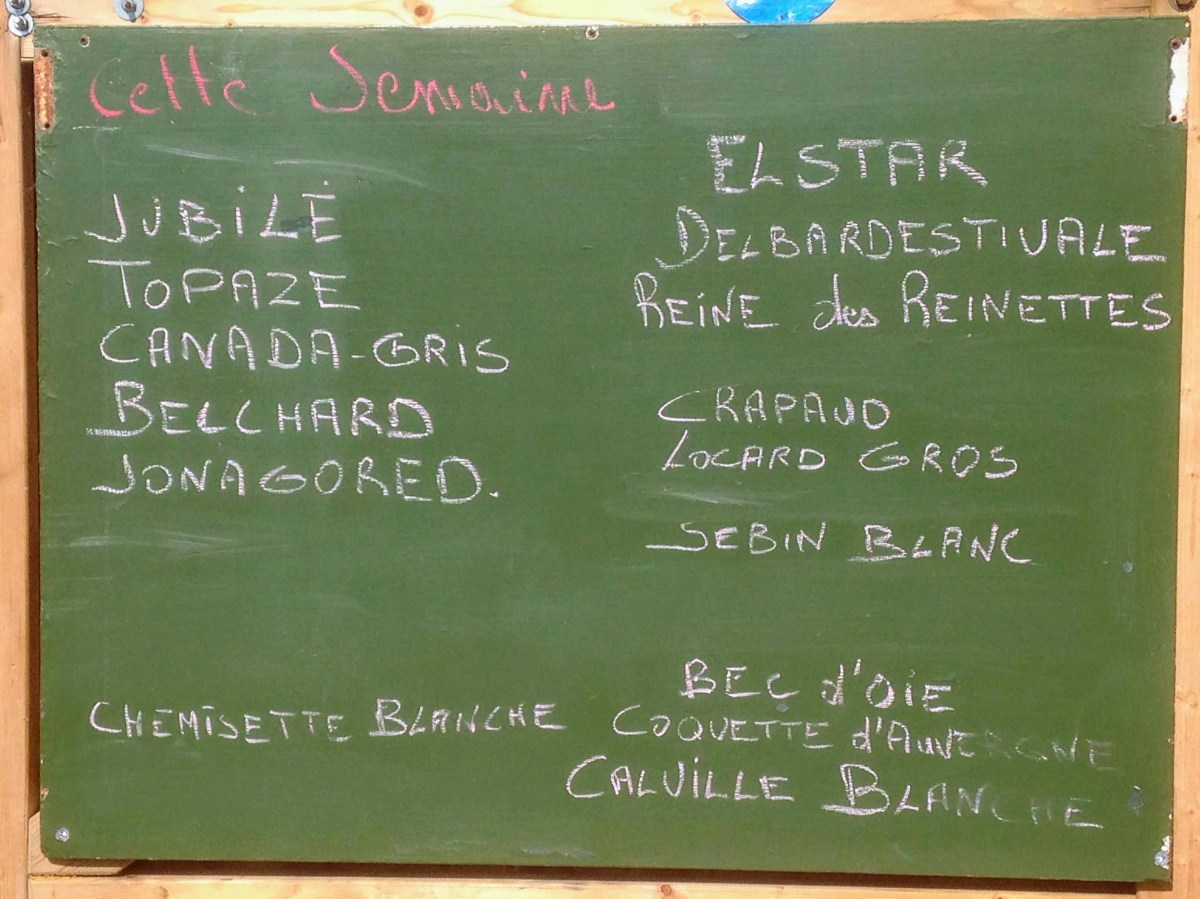 Cette Semaine
JUBILÉ
TOPAZE
CANADA-GRIS
BELCHARD
JONAGORED.
CHEMISETTE BLANCHE
ELSTAR
DELBARDESTIVALE
REINE des REINETTES
CRAPAUD
LOCARD GROS
SEBIN BLANC
BEC d'OIE
COQUETTE d'AUVERGNE
CALVILLE BLANCHE